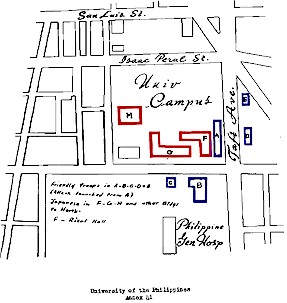 San Luis St.
Isaac Peral St.
Univ
Campus
Taft Ave.
M
E
D
A
F
G
C
B
Friendly troops in A-B-C-D & E
(Attack launched from A)
Japanese in F-G-H and other Bldgs
to North.
F - Rizal Hall
Philippine
Gen Hosp
University of the Philippines
Annex